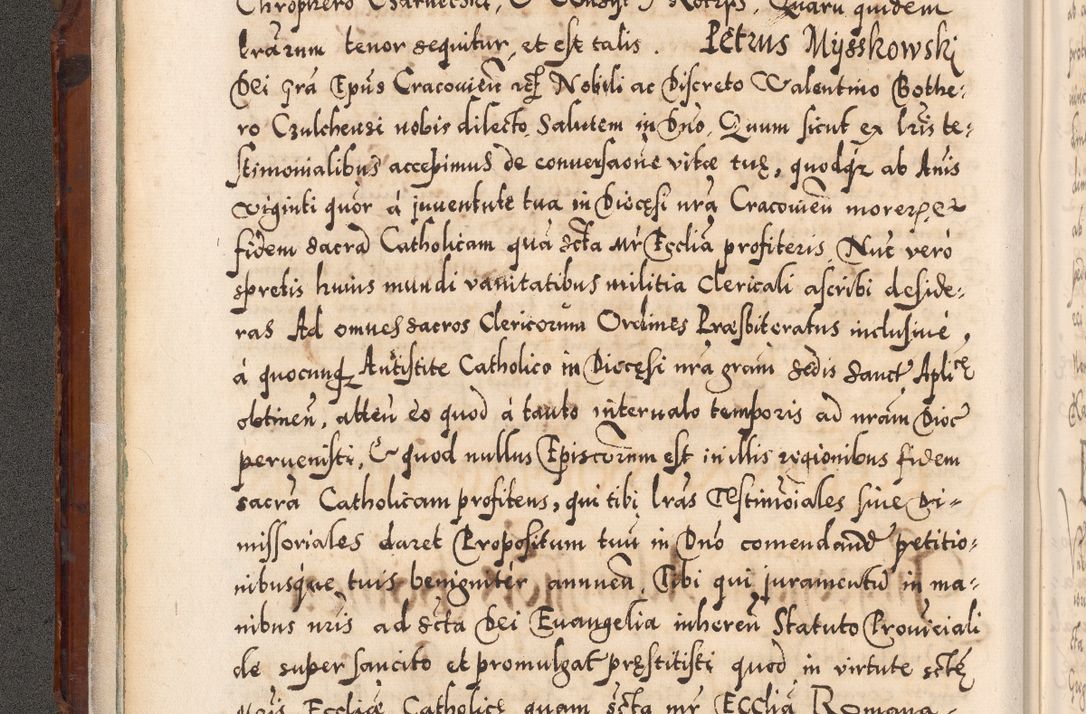 Chrophero Czarnecski, quidem
lrarum tenor sequitur, et est talis. Petrus Mysskowski
Dei gra Epus Cracovien etc Nobili ac Discreto Valentino Bothe:
ro Czulchensi nobis dilecto Salutem in Dno. Quum sicut ex lris te:
stimonialibus accepimus de conversaone vitæ tuę, quodqz ab Anis
viginti quor á juventute tua in Diocęsi nra Cracovien
fidem sacra Catholicam qua scta Mr Ecclia profiteris. Nuc vero
spretis huius mundi vanitatibus militia Clericali ascribi deside:
ras Ad omnes sacros Clericorum Ordines Præsbiteratus inclusiue,
á quocunqz Antistite Catholico in Diocęsi nra gram Sedis Sanct Aplicę
obtinen, atten eo quod á tanto interualo temporis ad nram Dioc
peruenisti, & quod nullus Episcorum est in illis regionibus fidem
sacra Catholicam profitens, qui tibi lras Testimoiales siue Di-
missoriales daret Propositum tuu in Dno comendand petitio-
nibusque tuis benigniter annuen. Tibi qui juramentu in ma-
nibus nris ad scta Dei Euangelia inheren Statuto Prouiciali
de super sancito et promulgat pręstitisti quod in virtute sctę
Mris Eccliæ Catholicę quam scta mr Ecclia Romana-